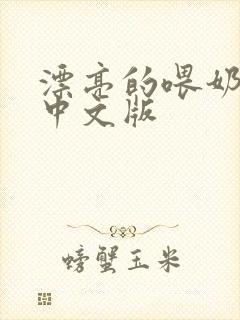 漂亮的喂奶
中文版
螃蟹玉米